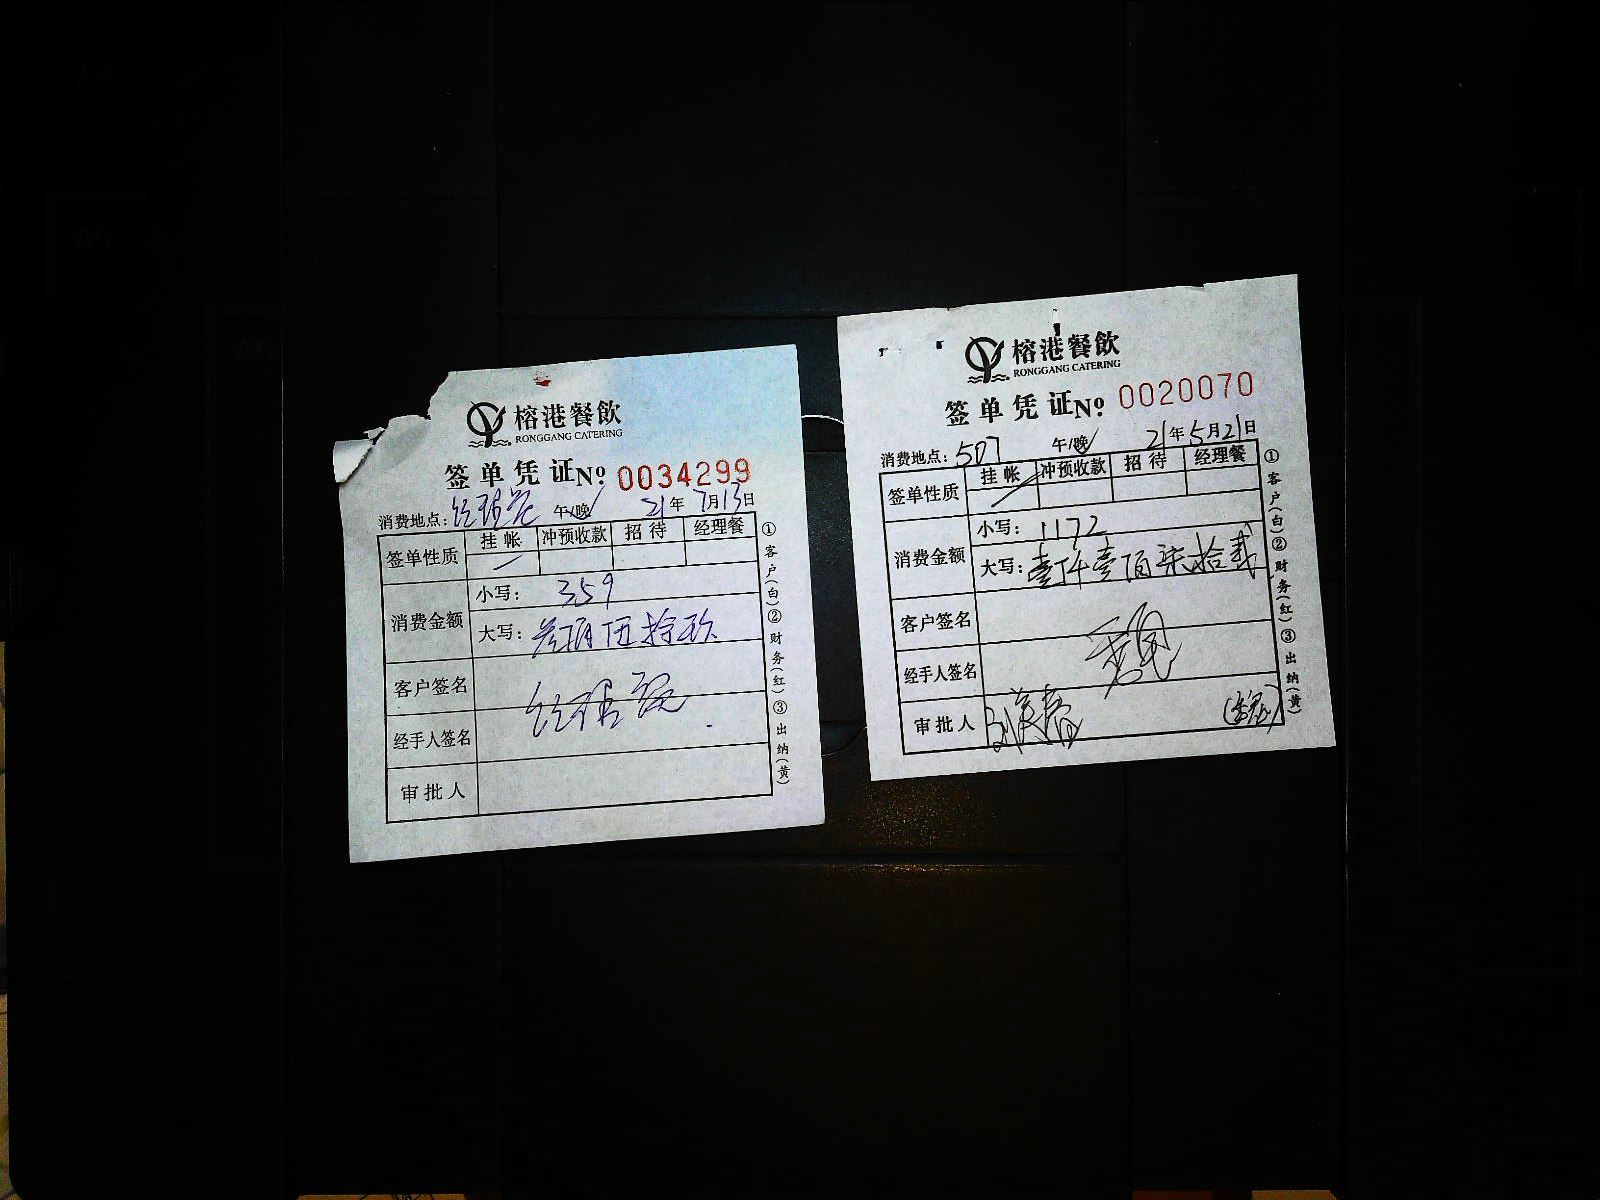 榕港餐飲
RONGGANG CATERING
签单凭证№ 0034299
消费地点: 午/晚 21年7月13日
签单性质 挂帐 冲预收款 招待 经理餐
消费金额 小写: 359
大写: 叁佰伍拾玖
客户签名
经手人签名
审批人
①客户(白)②财务(红)③出纳(黄)
榕港餐飲
RONGGANG CATERING
签单凭证№ 0020070
消费地点: 507 午/晚 21年5月21日
签单性质 挂帐 冲预收款 招待 经理餐
消费金额 小写: 1172
大写: 壹仟壹佰柒拾贰
客户签名
经手人签名
审批人
①客户(白)②财务(红)③出纳(黄)